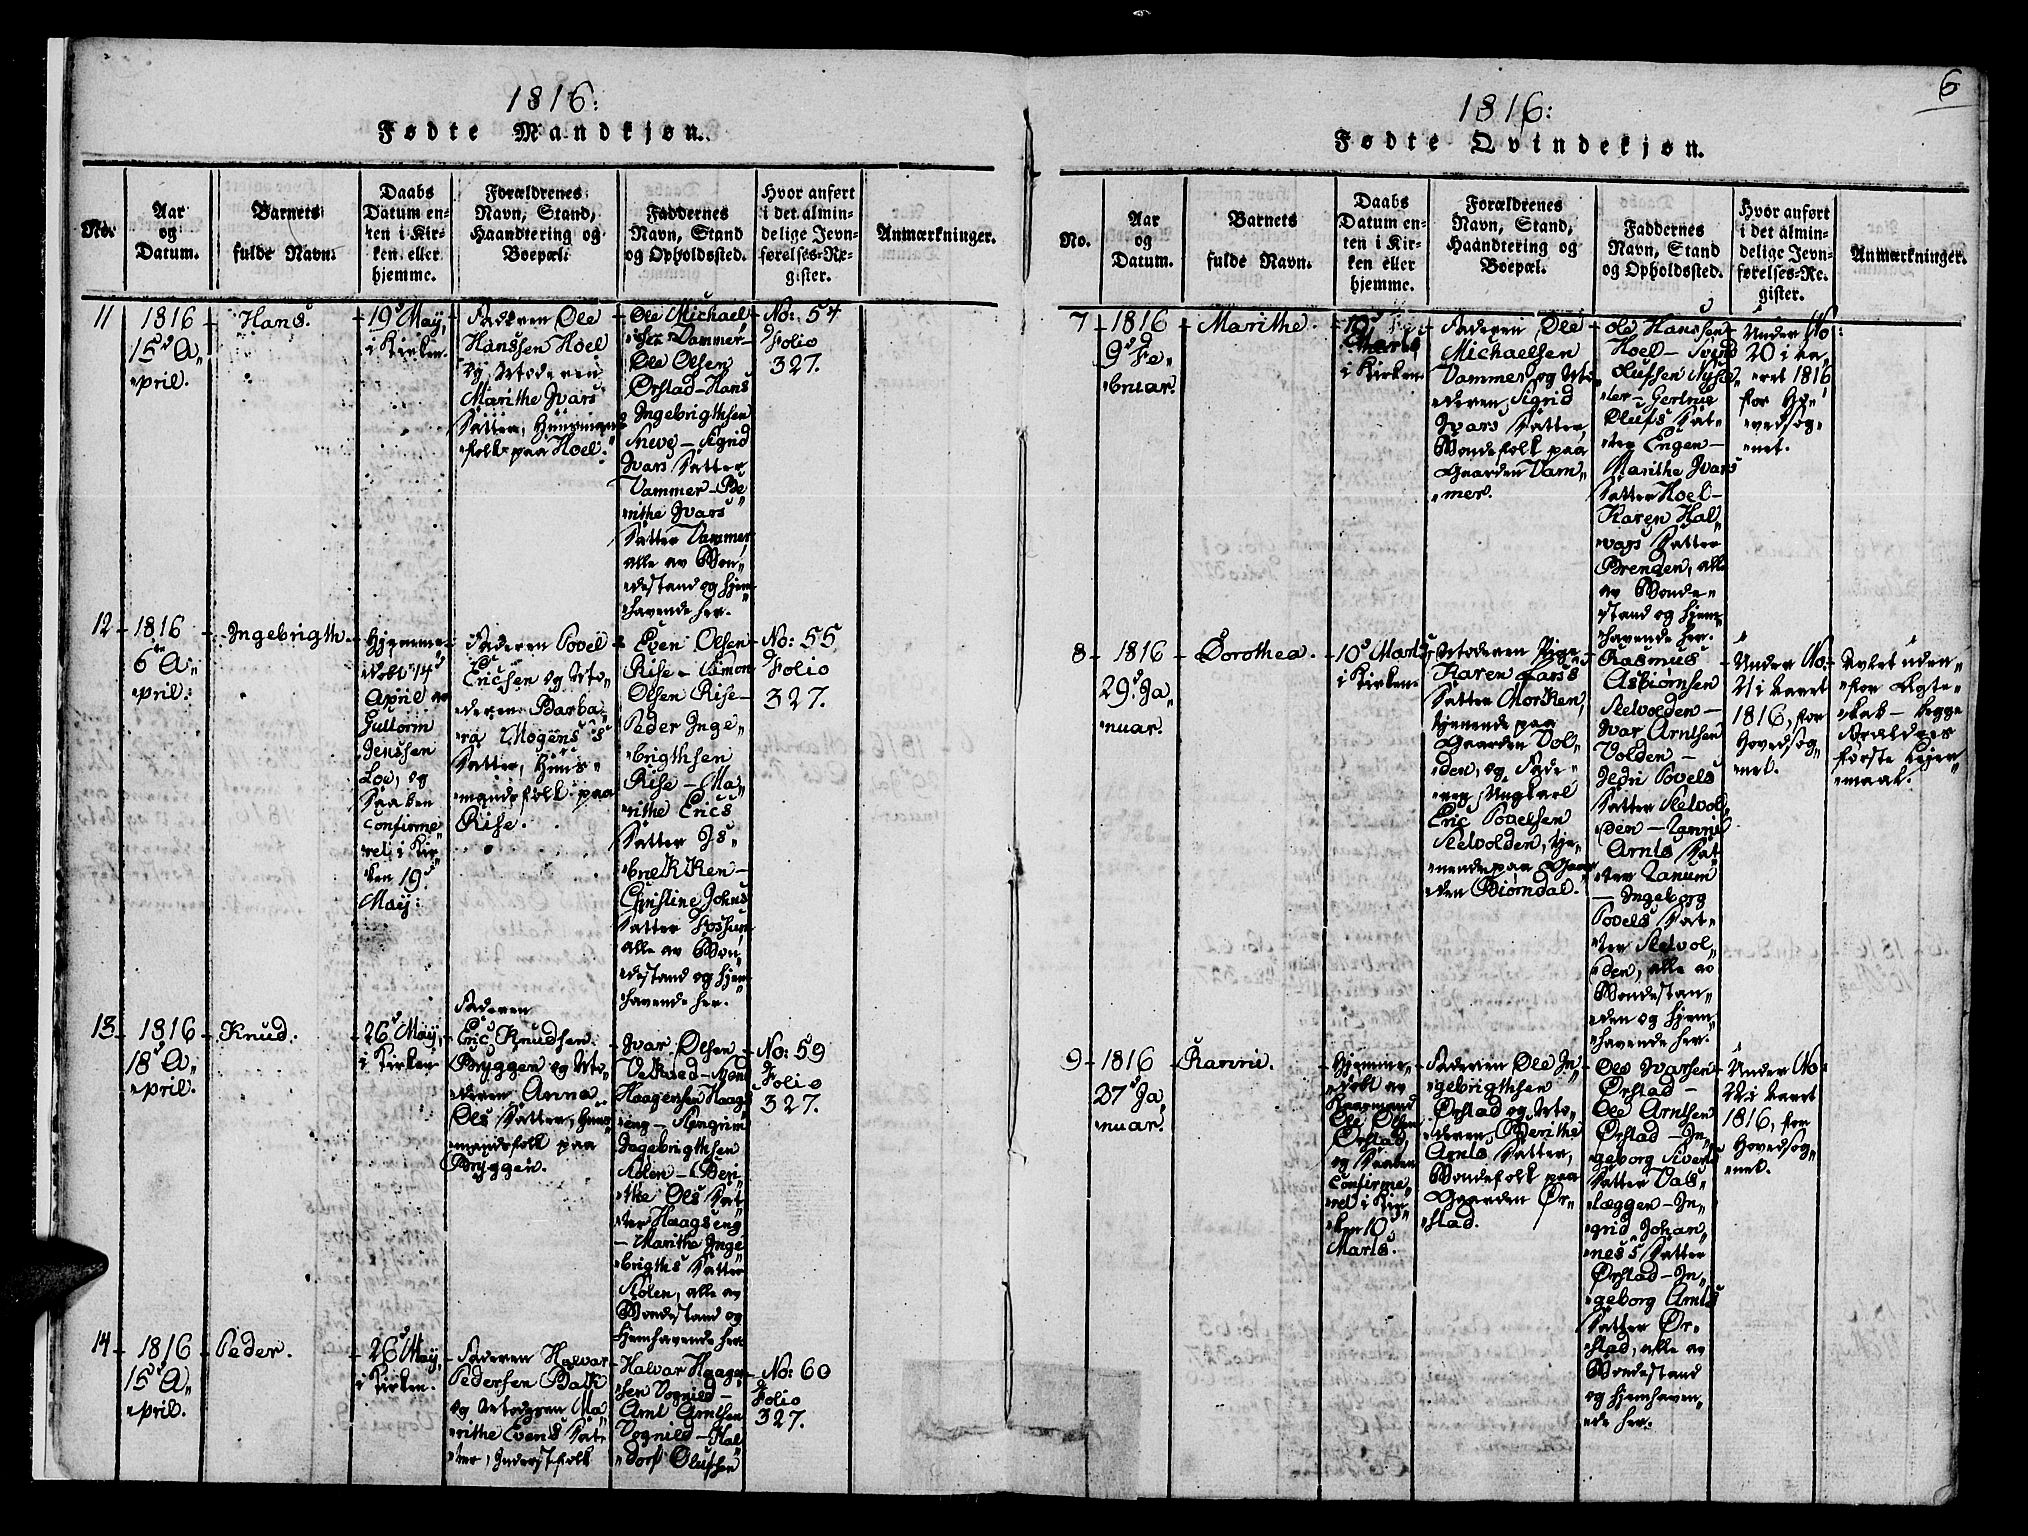 6
1816:
Fødte Mandkjøn.
No.
Aar
og
Datum.
Barnets
fulde Navn.
Daabs
Datum en-
ten i Kir-
ken eller
hjemme.
Forældrenes
Navn, Stand,
Haandtering og
Boepæl.
Faddernes
Navn, Stand
og Opholdssted.
Hvor anført
i det almin-
delige Jevn-
førelses-Re-
gister.
Anmærkninger.
11
1816
15d A„
„pril.
Hans.
19d May,
i Kirken.
Faderen Ole
Hanssen Hoel
og Moderen
Marithe Ivars
Datter, Huusmans
„folk paa Hoel.
Ole Michael
„sen Vammer–
Ole Olsen
Ørstad–Hans
Ingebrigthsen
Sneve–Sigrid
Ivars Datter
Vammer–Be„
„rithe Ivars
Datter Vammer
alle av Bon„
„destand og hjem„
„havende her.
No: 54
Folio
327.
12
1816
6te A„
„pril.
Ingebrigth.
Hjemme„
„døbt 14d
April av
Guttorm
Jenssen
Loe, og
Daaben
Confirme„
„ret i Kir„
„ken 19d
May:
Faderen Povel
Ericsen og Mo„
„deren Barba„
„ra Mogens
Datter, Huus„
„mandsfolk paa
Rise.
Even Olsen
Rise–Simon
Olsen Rise–
Peder Inge„
„brigthsen
Rise–Ma„
„rithe Erics
Datter Is„
„brekken–
Christine Johns
Datter Fossum
alle av Bon„
„destand og hjem„
„havende her.
No: 55
Folio
327.
13
1816
18d A„
„pril.
Knud.
26d May,
i Kirken
Faderen
Eric Knudsen
Bryggen og Mo„
„deren Anna
Ols Datter, Huus„
„mandsfolk paa
Bryggen.
Ivar Olsen
Haagensen Haags„
„eng–
Ingebrigthsen
Aalen–Beri„
„the Ols Dat„
„ter Haagseng
–Marithe Inge„
„brigths Datter
Aalen, alle av
Bondestand og
hjemhavende her
No: 59
Folio
327.
14
1816
15d A„
„pril.
Peder.
26d May,
i Kirken.
Faderen Halvor
Pedersen Bakk
og Moderen Ma„
„rithe Evens Dat„
„ter, Inderstfolk
Halvar Haagen„
„sen Vognild–
Arnt Arntsen
Vognild–Hal„
„dorf Olufsen
No: 60
Folio
327.
1816:
Fødte Qvindekjøn.
No.
Aar
og
Datum.
Barnets
fulde Navn.
Daabs
Datum en-
ten i Kir-
ken eller
hjemme.
Forældrenes
Navn, Stand,
Haandtering og
Boepæl.
Faddernes
Navn, Stand
og Opholdssted.
Hvor anført
i det almin-
delige Jevn-
førelses-Re-
gister.
Anmærkninger.
7
1816
9d Fe„
„bruar.
Marithe.
10d
Marts
i Kirken.
Faderen Ole
Michaelsen
Vammer og Mo„
„deren Sigrid
Ivars Datter,
Bondefolk paa
Gaarden Vam„
„mer.
Ole Hanssen
Hoel–Svend
Olufsen Nysæ„
„ter–Gertrue
Olufs Dat„
„ter Engen–
Marithe Ivars
Datter Hoel–
Karen Hal„
„vors Datter
Brenden, alle
av Bonde„
„stand og hjem„
„havende her.
Under No:
20 i Aa„
„ret 1816
for Ho„
„vedsog„
„net.
8
1816
29d Ja„
„nuar.
Dorothea.
10d Marts
i Kirken.
Moderen Pige
Karen Lars
Datter Morken,
tjenende paa
Gaarden Vol„
„den, og Fade„
„ren Ungkarl
Eric Povelsen
Stelvolden, tje„
„nende paa Gaar„
„den Biørndal.
Rasmus
Asbiørnsen
Stelvolden–
Ivar Arntsen
Volden–
Povels
Datter Stelvol„
„den–
Arnts Dat„
„ter Lanum
–Ingeborg
Povels Dat„
„ter Stelvol„
„den, alle av
Bondestan„
„den og hjem„
„havende her.
Under No
21 i Aaret
1816, for
Hovedsog„
„net.
Avlet uden„
„for Ægte„
„skab–begge
Forældres
første Leier„
„maal.
9
1816
27d Ja„
„nuar.
Ranni.
Hjemme„
„døbt av
Gaarmand
Ole Olsen
Ørstad,
og Daaben
Confirme„
„ret i Kir„
„ken 10d
Marts.
Faderen Ole In„
„gebrigthsen
Ørstad og Mo„
„deren Berithe
Arnts Datter,
Bondefolk paa
Gaarden Ør„
„stad.
Ole Ivarsen
Ørstad–
Ole Arntsen
Ørstad–In„
„geborg Siverts
Datter Vas„
„læggen–In„
„grid Johan„
„nes's Datter
Ørstad–In„
„geborg Arnts
Datter Ør„
„stad, alle av
Bondestand
og hjemhaven„
„de her.
Under No:
22 i Aaret
1816, for
Hovedsog„
„net.